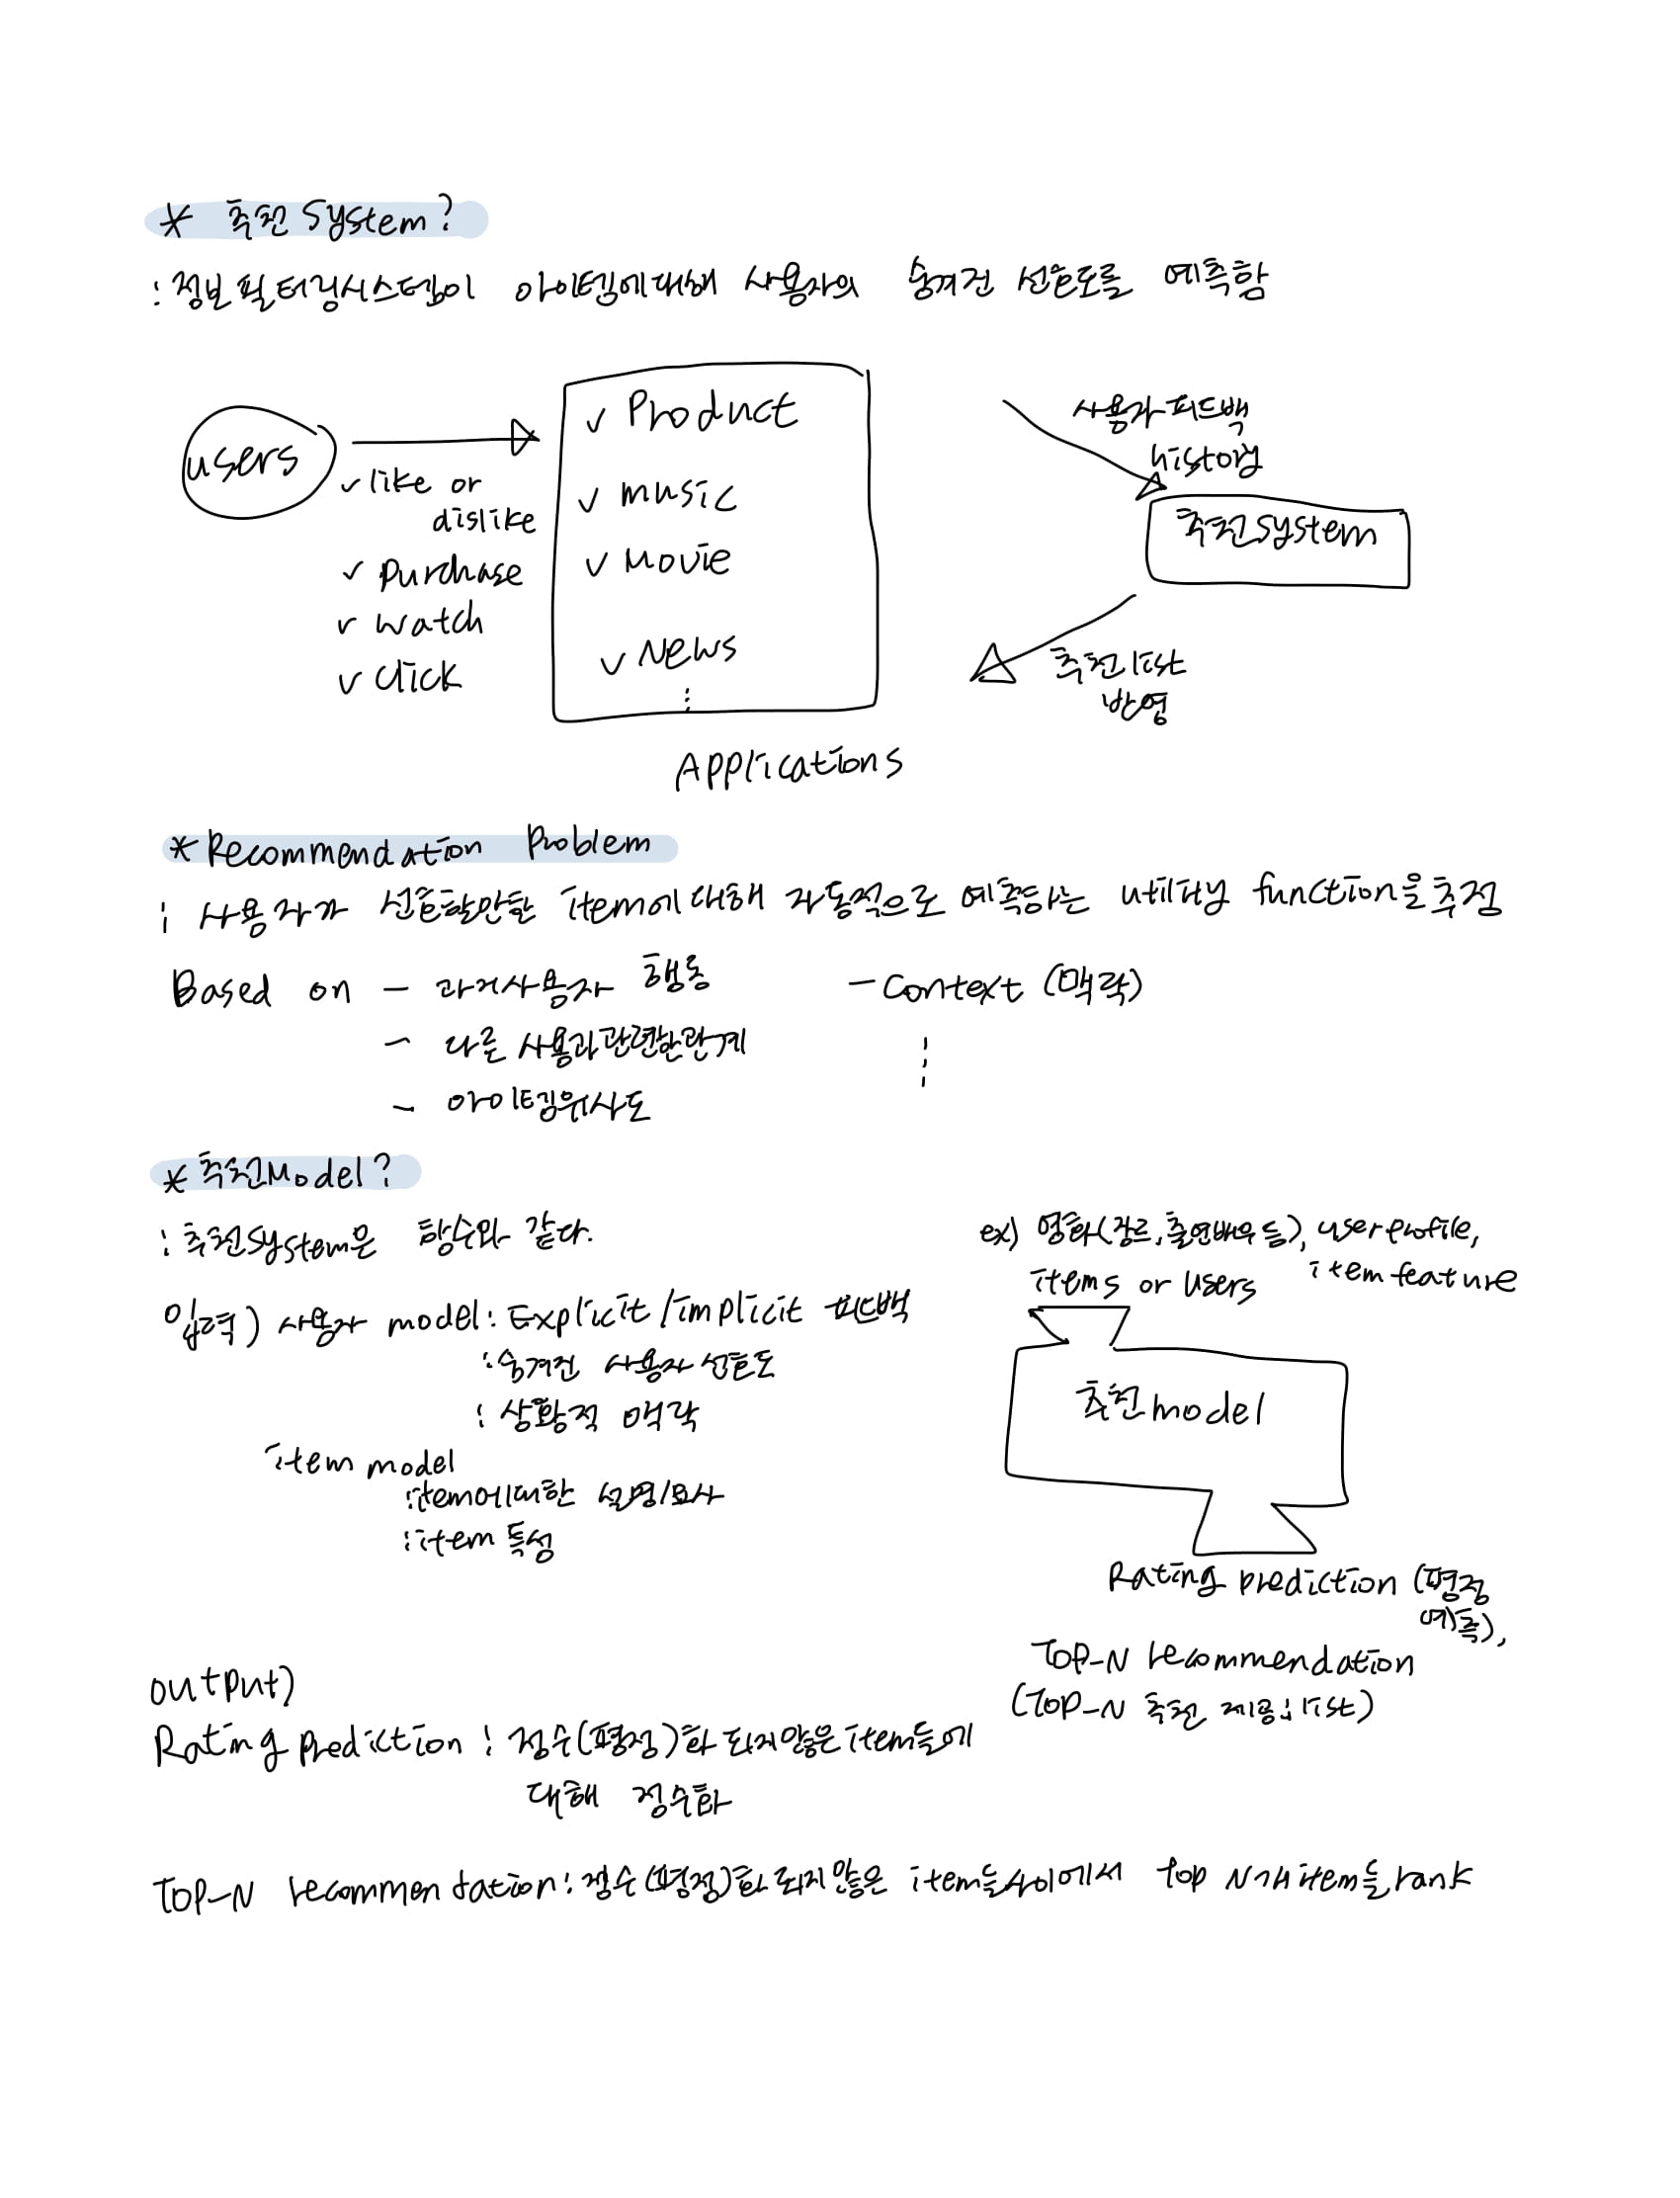 * 추천 System?
: 정보필터링시스템이 아이템에대해 사용자의 숨겨진 선호도를 예측함
users
✓ like or
dislike
✓ purchase
✓ watch
✓ click
✓ Product
✓ music
✓ Movie
✓ News
⋮
Applications
사용자피드백
history
추천system
추천list
반영
* Recommendation Problem
: 사용자가 선호할만한 item에대해 자동적으로 예측하는 utility function을추정
Based on - 과거사용자 행동
- 다른 사용과관련한관계
- 아이템유사도
- Context (맥락)
⋮
* 추천Model?
: 추천System은 함수와 같다.
입력) 사용자 model : Explicit/implicit 피드백
: 숨겨진 사용자선호도
: 상황적 맥락
item model
: item에대한 설명/묘사
: item 특성
ex) 영화(장르, 출연배우 등), user profile,
items or users item feature
추천model
Rating prediction (평점
예측),
Top-N recommendation
(Top-N 추천 제공 : list)
output)
Rating prediction : 점수(평점)화 되지않은item들에
대해 점수화
Top-N recommendation : 점수(평점)화되지않은 item들사이에서 top N개item들rank